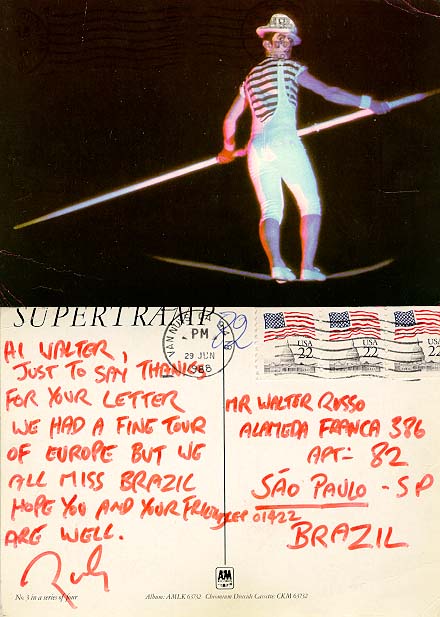 SUPERTRAMP
VAN NUYS, CA
PM
29 JUN
1988
82
USA
22
USA
22
USA
22
HI WALTER,
JUST TO SAY THANKS
FOR YOUR LETTER
WE HAD A FINE TOUR
OF EUROPE BUT WE
ALL MISS BRAZIL
HOPE YOU AND YOUR FRIENDS
ARE WELL.
MR WALTER RUSSO
ALAMEDA FRANCA 386
APT= 82
SÃO PAULO - SP
CEP 01422
BRAZIL
A&M
No. 3 in a series of four
Album: AMLK 63732 Chromium Dioxide Cassette: CKM 63732